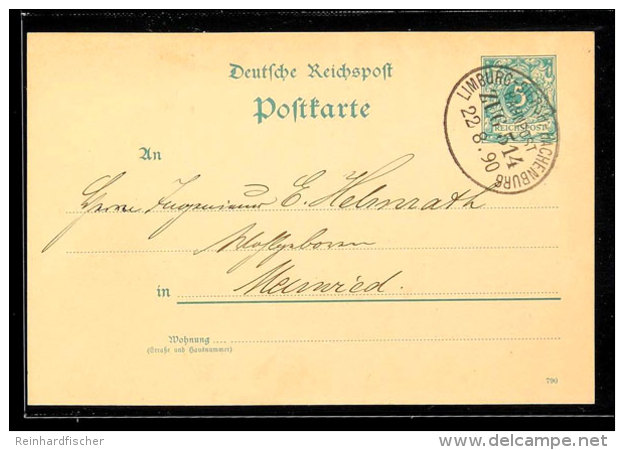 Deutsche Reichspost
Postkarte
5
REICHSPOST
LIMBURG HACHENBURG
ZUG 514
22 8.90
An
Herrn Ingenieur E. Helmrath
Wohlgeboren
in Neuwied.
Wohnung
(Straße und Hausnummer)
790
Reinhardfischer
http://www.delcampe.net